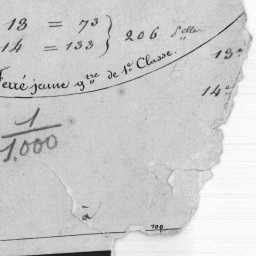 13 = 73
14 = 133 } 206
13°
Ferré jeune gre de 1e Classe.
14°
1
1.000
à
109